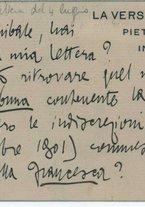 del 4 luglio
LA VERS
PIET
IN
nibale, hai
mia lettera?
ritrovare quel n
contenente la
le indiscrezioni
bre 1901) commes
lla Francesca?